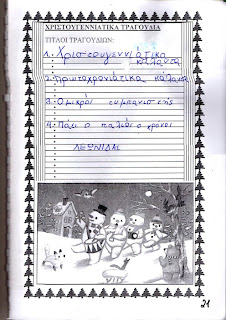 ΧΡΙΣΤΟΥΓΕΝΝΙΑΤΙΚΑ ΤΡΑΓΟΥΔΙΑ
ΤΙΤΛΟΙ ΤΡΑΓΟΥΔΙΩΝ:
1. Χριστουγεννιάτικα
κάλαντα
2. Πρωτοχρονιάτικα κάλαντα
3. Ο μικρός τυμπανιστής
4. Πάει ο παλιός ο χρόνος
ΛΕΩΝΙΔΑΣ
21